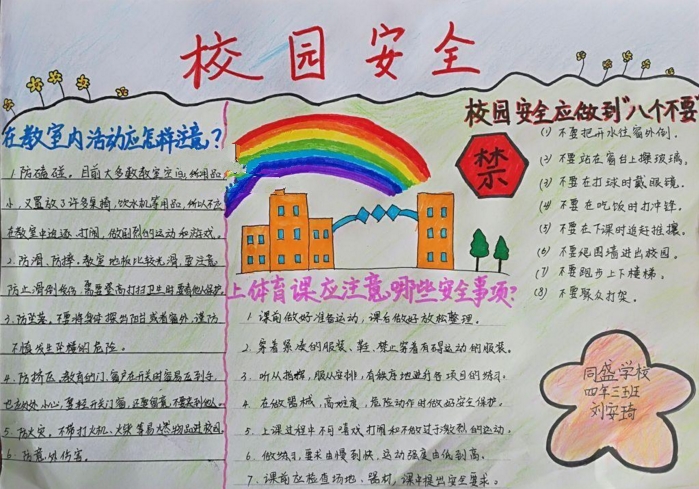 校园安全
在教室内活动应怎样注意?
1.防磕碰。目前大多数教室空间
小,又置放了许多桌椅、饮水机等用品,所以不应
在教室中追逐、打闹,做剧烈的运动和游戏。
2.防滑、防摔。教室地板比较光滑,要注意
防止滑倒
3.防坠落。不要将身体探出阳台或者窗外,谨防
不慎发生坠楼的危险。
4.防挤压。教室的门、窗户在开关时容易压到手,
5.防火灾。不带打火机、火柴等易燃物品进校园。
6.防意外伤害。
上体育课应注意哪些安全事项?
1.课前做好准备运动,课后做好放松整理。
2.穿着柔软的服装、鞋,禁止穿着有碍运动的服装。
3.听从指挥,服从安排,有秩序地进行各项目的练习。
4.在做器械,高难度,危险动作时做好安全保护。
5.上课过程中不用嘻戏打闹和不做过于激烈的运动。
6.做练习,要求由慢到快,运动强度由低到高。
7.课前应检查场地、器材,课中提出安全要求。
校园安全应做到“八个不要”
禁
(1) 不要把开水往窗外倒。
(2) 不要站在窗台上擦玻璃。
(3) 不要在打球时戴眼镜。
(4) 不要在吃饭时打冲锋。
(5) 不要在下课时追赶推攘。
(6) 不要爬围墙进出校园。
(7) 不要跑步上下楼梯。
(8) 不要聚众打架。
同盛学校
四年三班
刘安琦